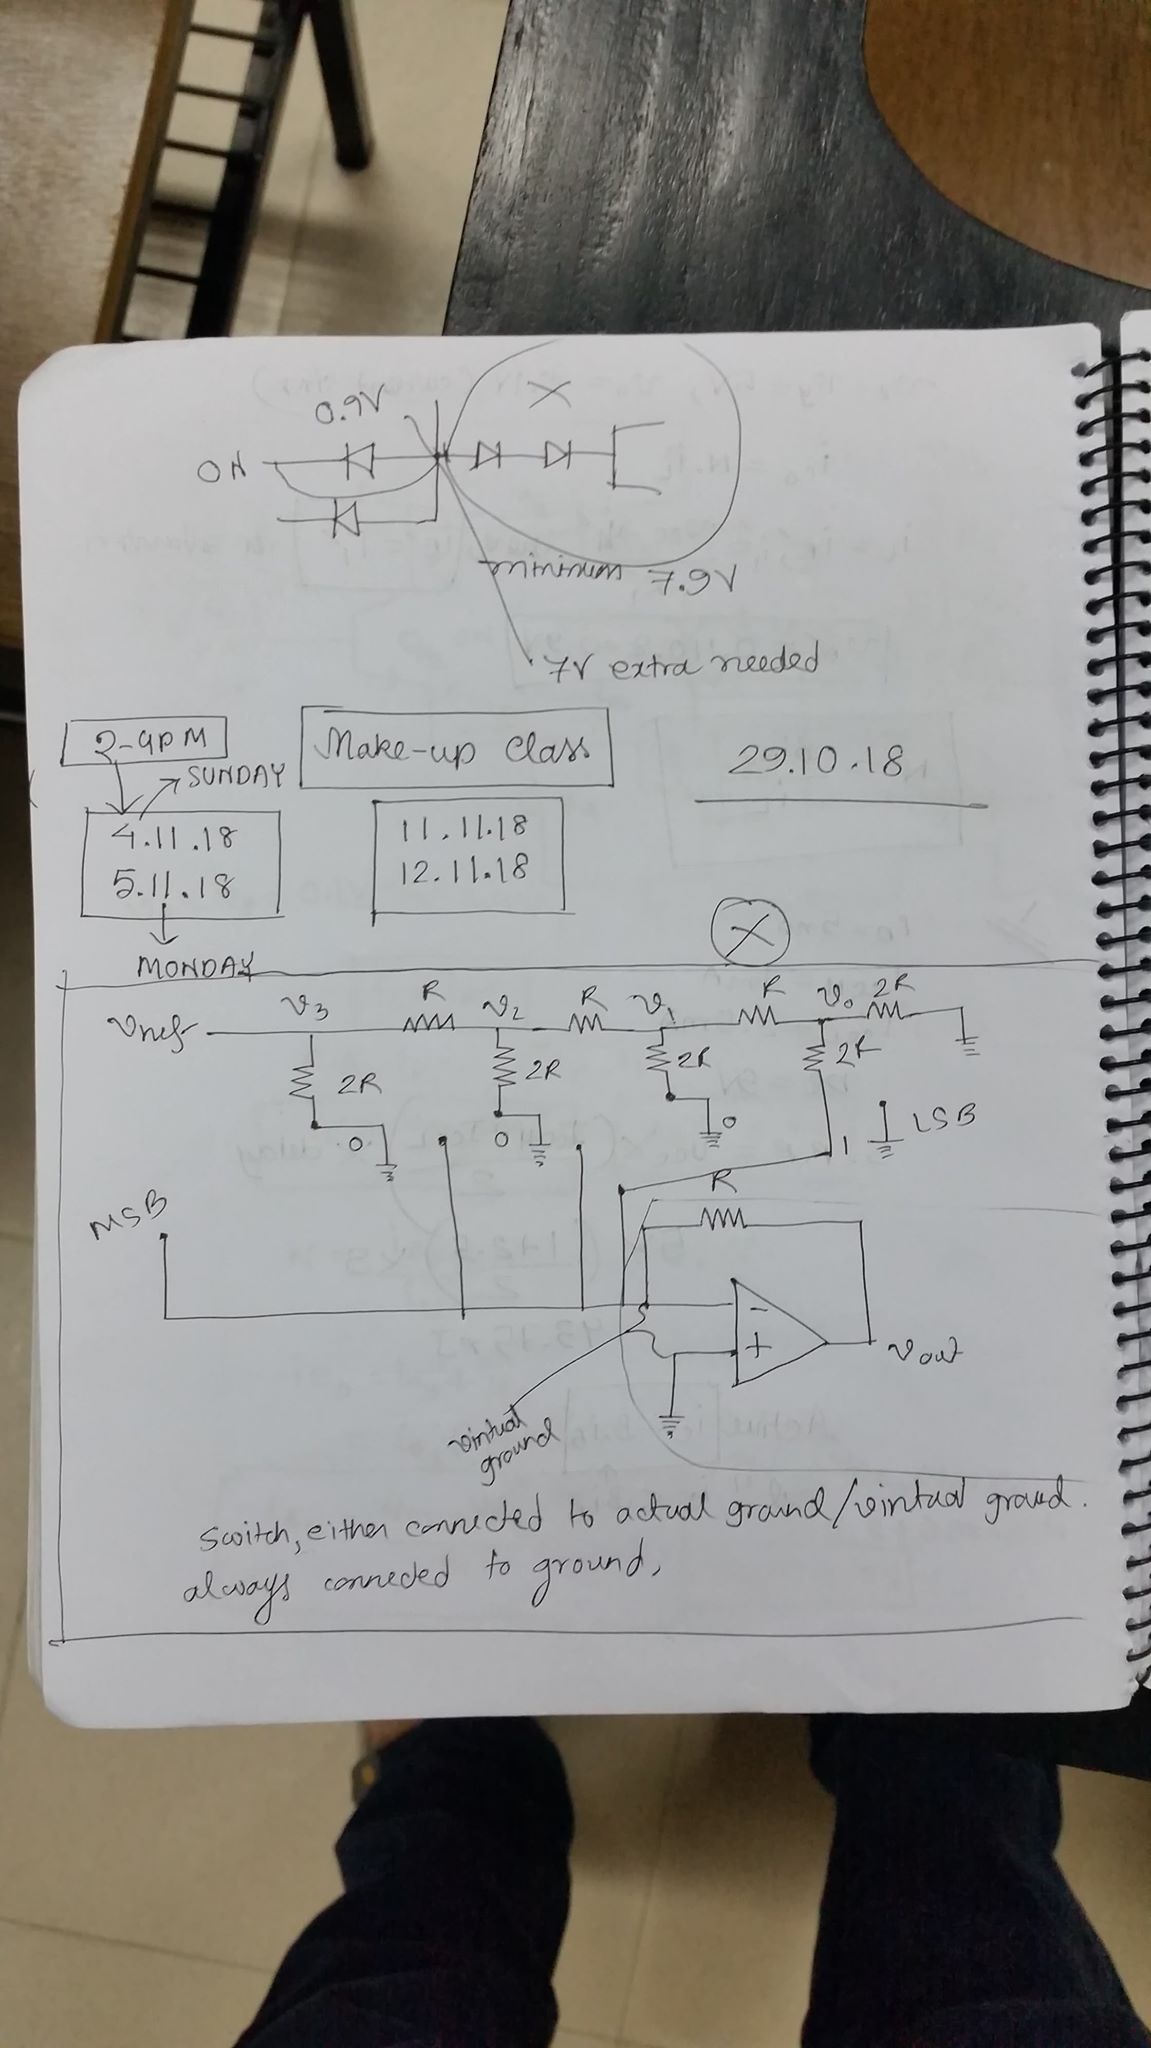 0.9V
X
ON
minimum 7.9V
7V extra needed
2-4PM
Make-up class
29.10.18
SUNDAY
4.11.18
5.11.18
11.11.18
12.11.18
MONDAY
X
Vref
V3
R
V2
R
V1
R
V0
2R
2R
2R
2R
2R
0
0
0
1
LSB
MSB
R
-
+
Vout
virtual
ground
Switch, either connected to actual ground/virtual ground.
always connected to ground,